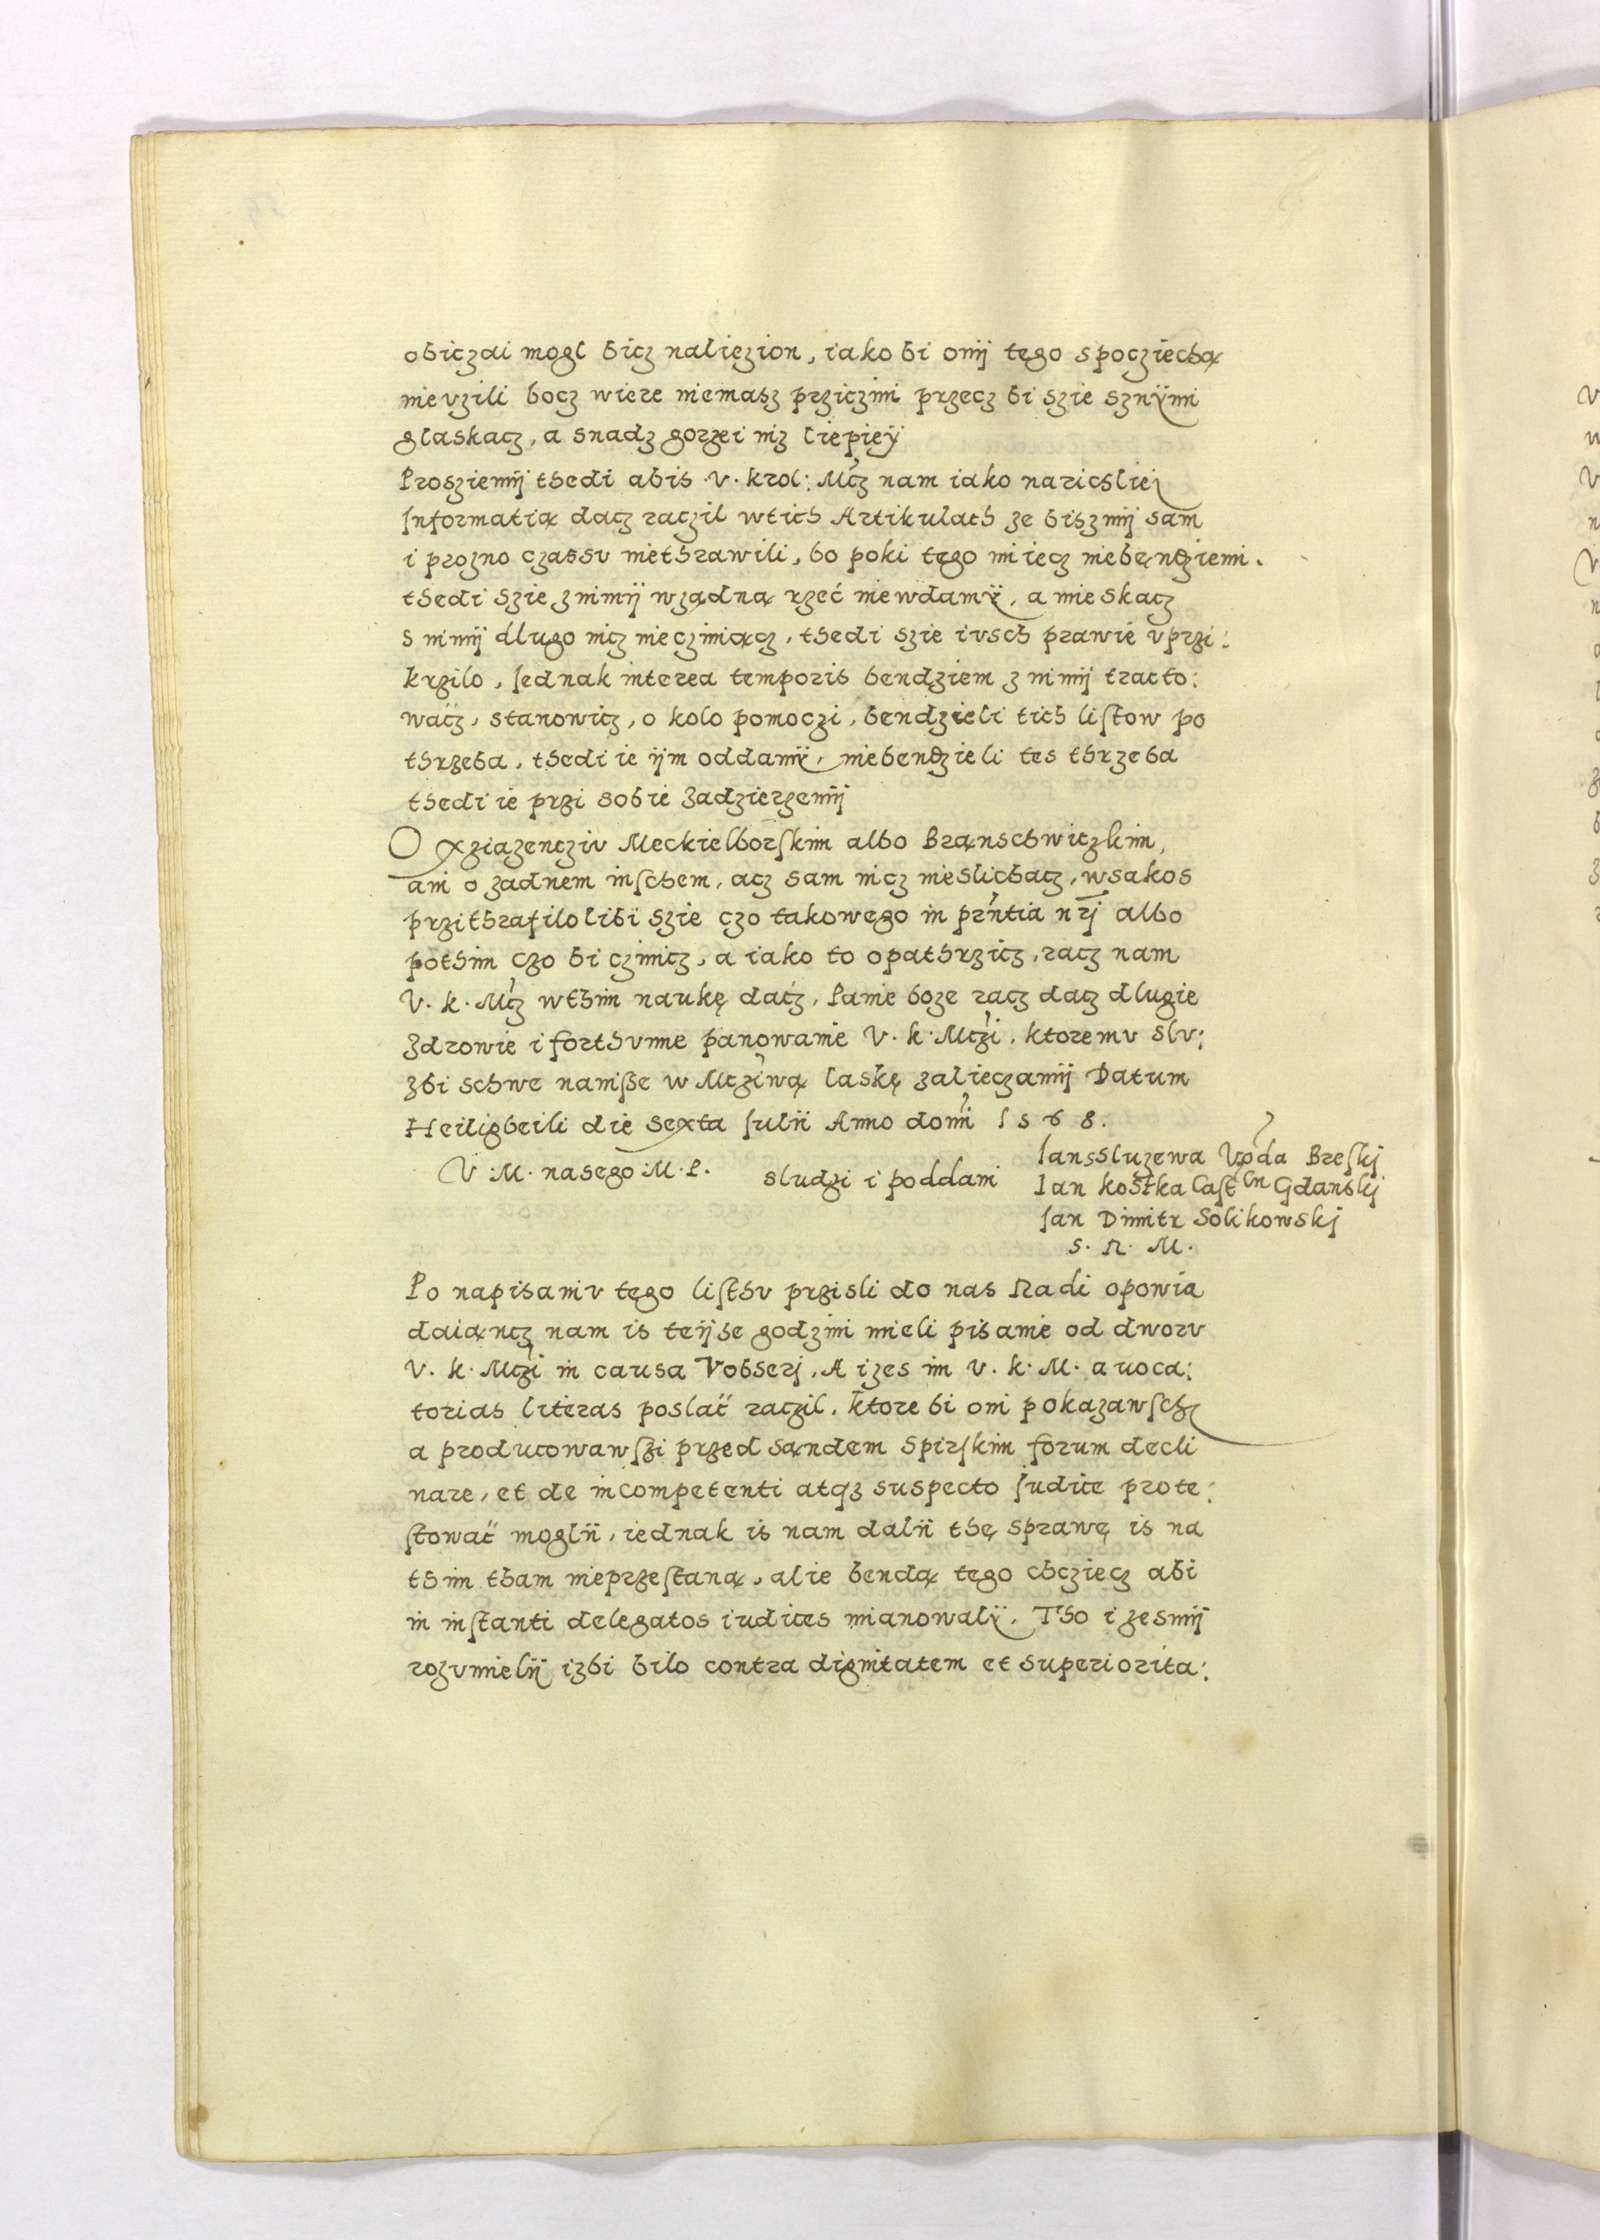 obiczai mogl bicz naliezion, iako bi onij tego spocziechą
nieuzili bocz wiere niemasz prziczini przecz bi szie sznÿmi
glaskacz, a snadz gorzei niz liepieÿ
Prosziemij thedi abis .V. krol: Mcz nam iako narichliei
Informatią dacz raczil wtich Artikulach ze biszmij sam
i prozno czassu niethrawili, bo poki tego miiecz niebęndziemi.
thedi szie znimij wżądną rzeć niewdamÿ, a mieskacz
s nimij dlugo nicz niecziniącz, thedi szie iusch prawie uprzi:
krzilo, Jednak interea temporis bendziem z nimij tracto:
wacz, stanowicz, o kolo pomoczi, bendzieli tich listow po
thrzeba, thedi ie ijm oddamÿ, niebendzieli tes thrzeba
thedi ie przi sobie zadzierzemij
O xziazencziu Meckielborskim albo Branschwiczkim,
ani o zadnem inschem, acz sam nicz nieslichacz, wsakos
przithrafilolibi szie czo takowego in prntia nrj albo
pothim czo bi czinicz, a iako to opathrzicz, racz nam
V. k. Mcz wthim naukę dacz, Panie boze racz dacz dlugie
zdrowie i forthunne panowanie V. k. Mczi. ktoremu slu:
zbi schwe nanisze w Mcziwą laskę zalieczamij Datum
Heiligbeili die sexta Julii Anno domi 1568.
V. M. nasego M. P. sludzi i poddani Janssluzewa Voda Breskj
Jan kostka Castln Gdanskj
Jan Dimitr Solikowskj
S. R. M.
Po napisaniu tego listhu przisli do nas Radi opowia
daiąncz nam is teijse godzini mieli pisanie od dworu
V. k. Mczi in causa Vobserj, A izes im V. k. M. auoca:
torias literas poslać raczil, ktore bi oni pokazawsch
a producowawszi przed sąndem Spirskim forum decli
nare, et de incompetenti atqz suspecto Judice prote:
stować moglij, iednak is nam dalij thę sprawę is na
thim tham nieprzestaną, alie bendą tego chcziecz abi
in instanti delegatos iudices mianowalÿ. Tho i zesmij
rozumielij izbi bilo contra dignitatem et superiorita: